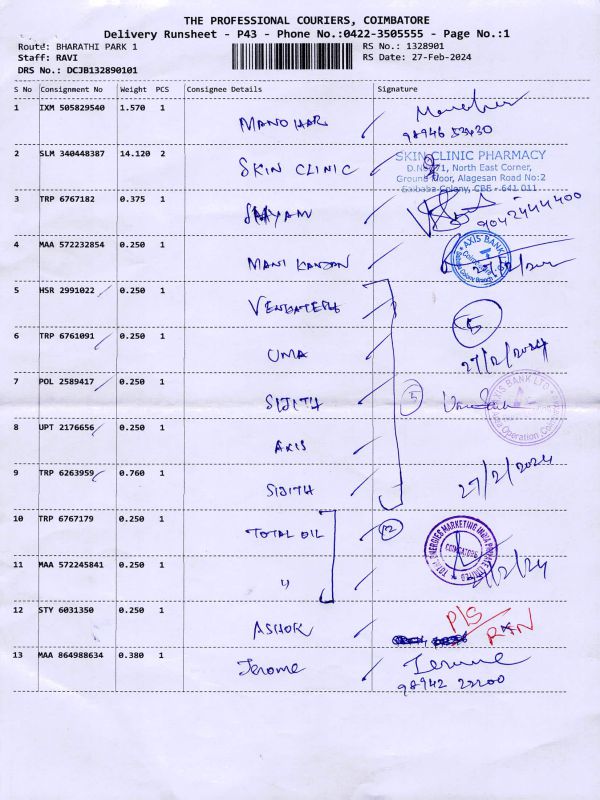 THE PROFESSIONAL COURIERS, COIMBATORE
Delivery Runsheet - P43 - Phone No.:0422-3505555 - Page No.:1
Route: BHARATHI PARK 1 RS No.: 1328901
Staff: RAVI RS Date: 27-Feb-2024
DRS No.: DCJB132890101
S No Consignment No Weight PCS Consignee Details Signature
1 IXM 505829540 1.570 1 MANOHAR
2 SLM 340448387 14.120 2 SKIN CLINIC
SKIN CLINIC PHARMACY
D.No 71, North East Corner,
Ground Floor, Alagesan Road No:2
Saibaba Colony, CBE - 641 011
3 TRP 6767182 0.375 1 SHYAM 9042444400
4 MAA 572232854 0.250 1 MANI KANDAN
AXIS BANK
5 HSR 2991022 0.250 1 5
6 TRP 6761091 0.250 1 UMA 27/2/2024
7 POL 2589417 0.250 1 SIJITH 5
AXIS BANK LTD
8 UPT 2176656 0.250 1 AXIS
9 TRP 6263959 0.760 1 SIJITH 27/2/2024
10 TRP 6767179 0.250 1 TOTAL OIL
TOTAL ENERGIES MARKETING INDIA PRIVATE LIMITED
COIMBATORE
11 MAA 572245841 0.250 1 "
12 STY 6031350 0.250 1 ASHOK P/S
13 MAA 864988634 0.380 1 Jerome Jerome
98942 22200